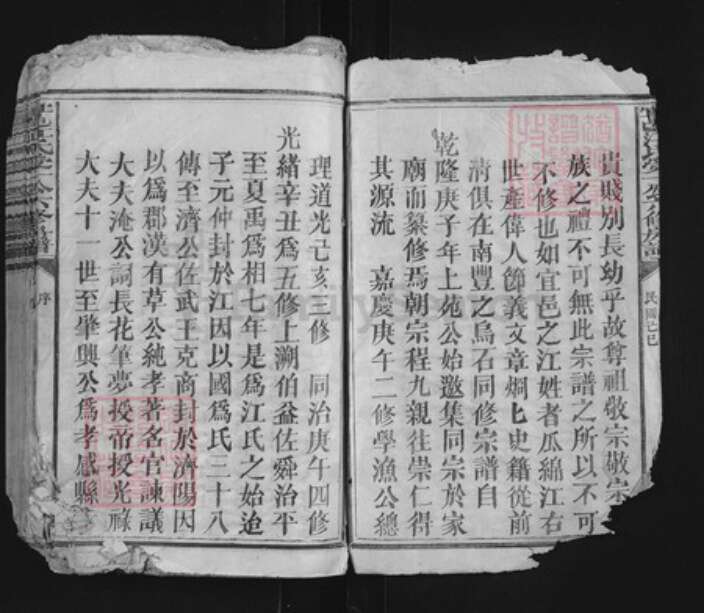 貴賤別長幼乎故尊祖敬宗敬宗
族之禮不可無此宗譜之所以不可
不修也如宜邑之江姓者瓜綿江右
世產偉人節義文章炯匕史籍從前
清俱在南豐之烏石同修宗譜自
乾隆庚子年上苑公始邀集同宗於家
廟而纂修焉朝宗程九親往崇仁得
其源流 嘉慶庚午二修學漁公總
民國己巳
理道光己亥三修 同治庚午四修
光緒辛丑為五修上溯伯益佐舜治平
至夏禹為相七年是為江氏之始迨
子元仲封於江因以國為氏三十八
傳至濟公佐武王克商封於濟陽因
以為郡漢有草公純孝著名官諫議
大夫淹公詞長花筆夢授帝授光祿
大夫十一世至肇興公為孝感縣
序